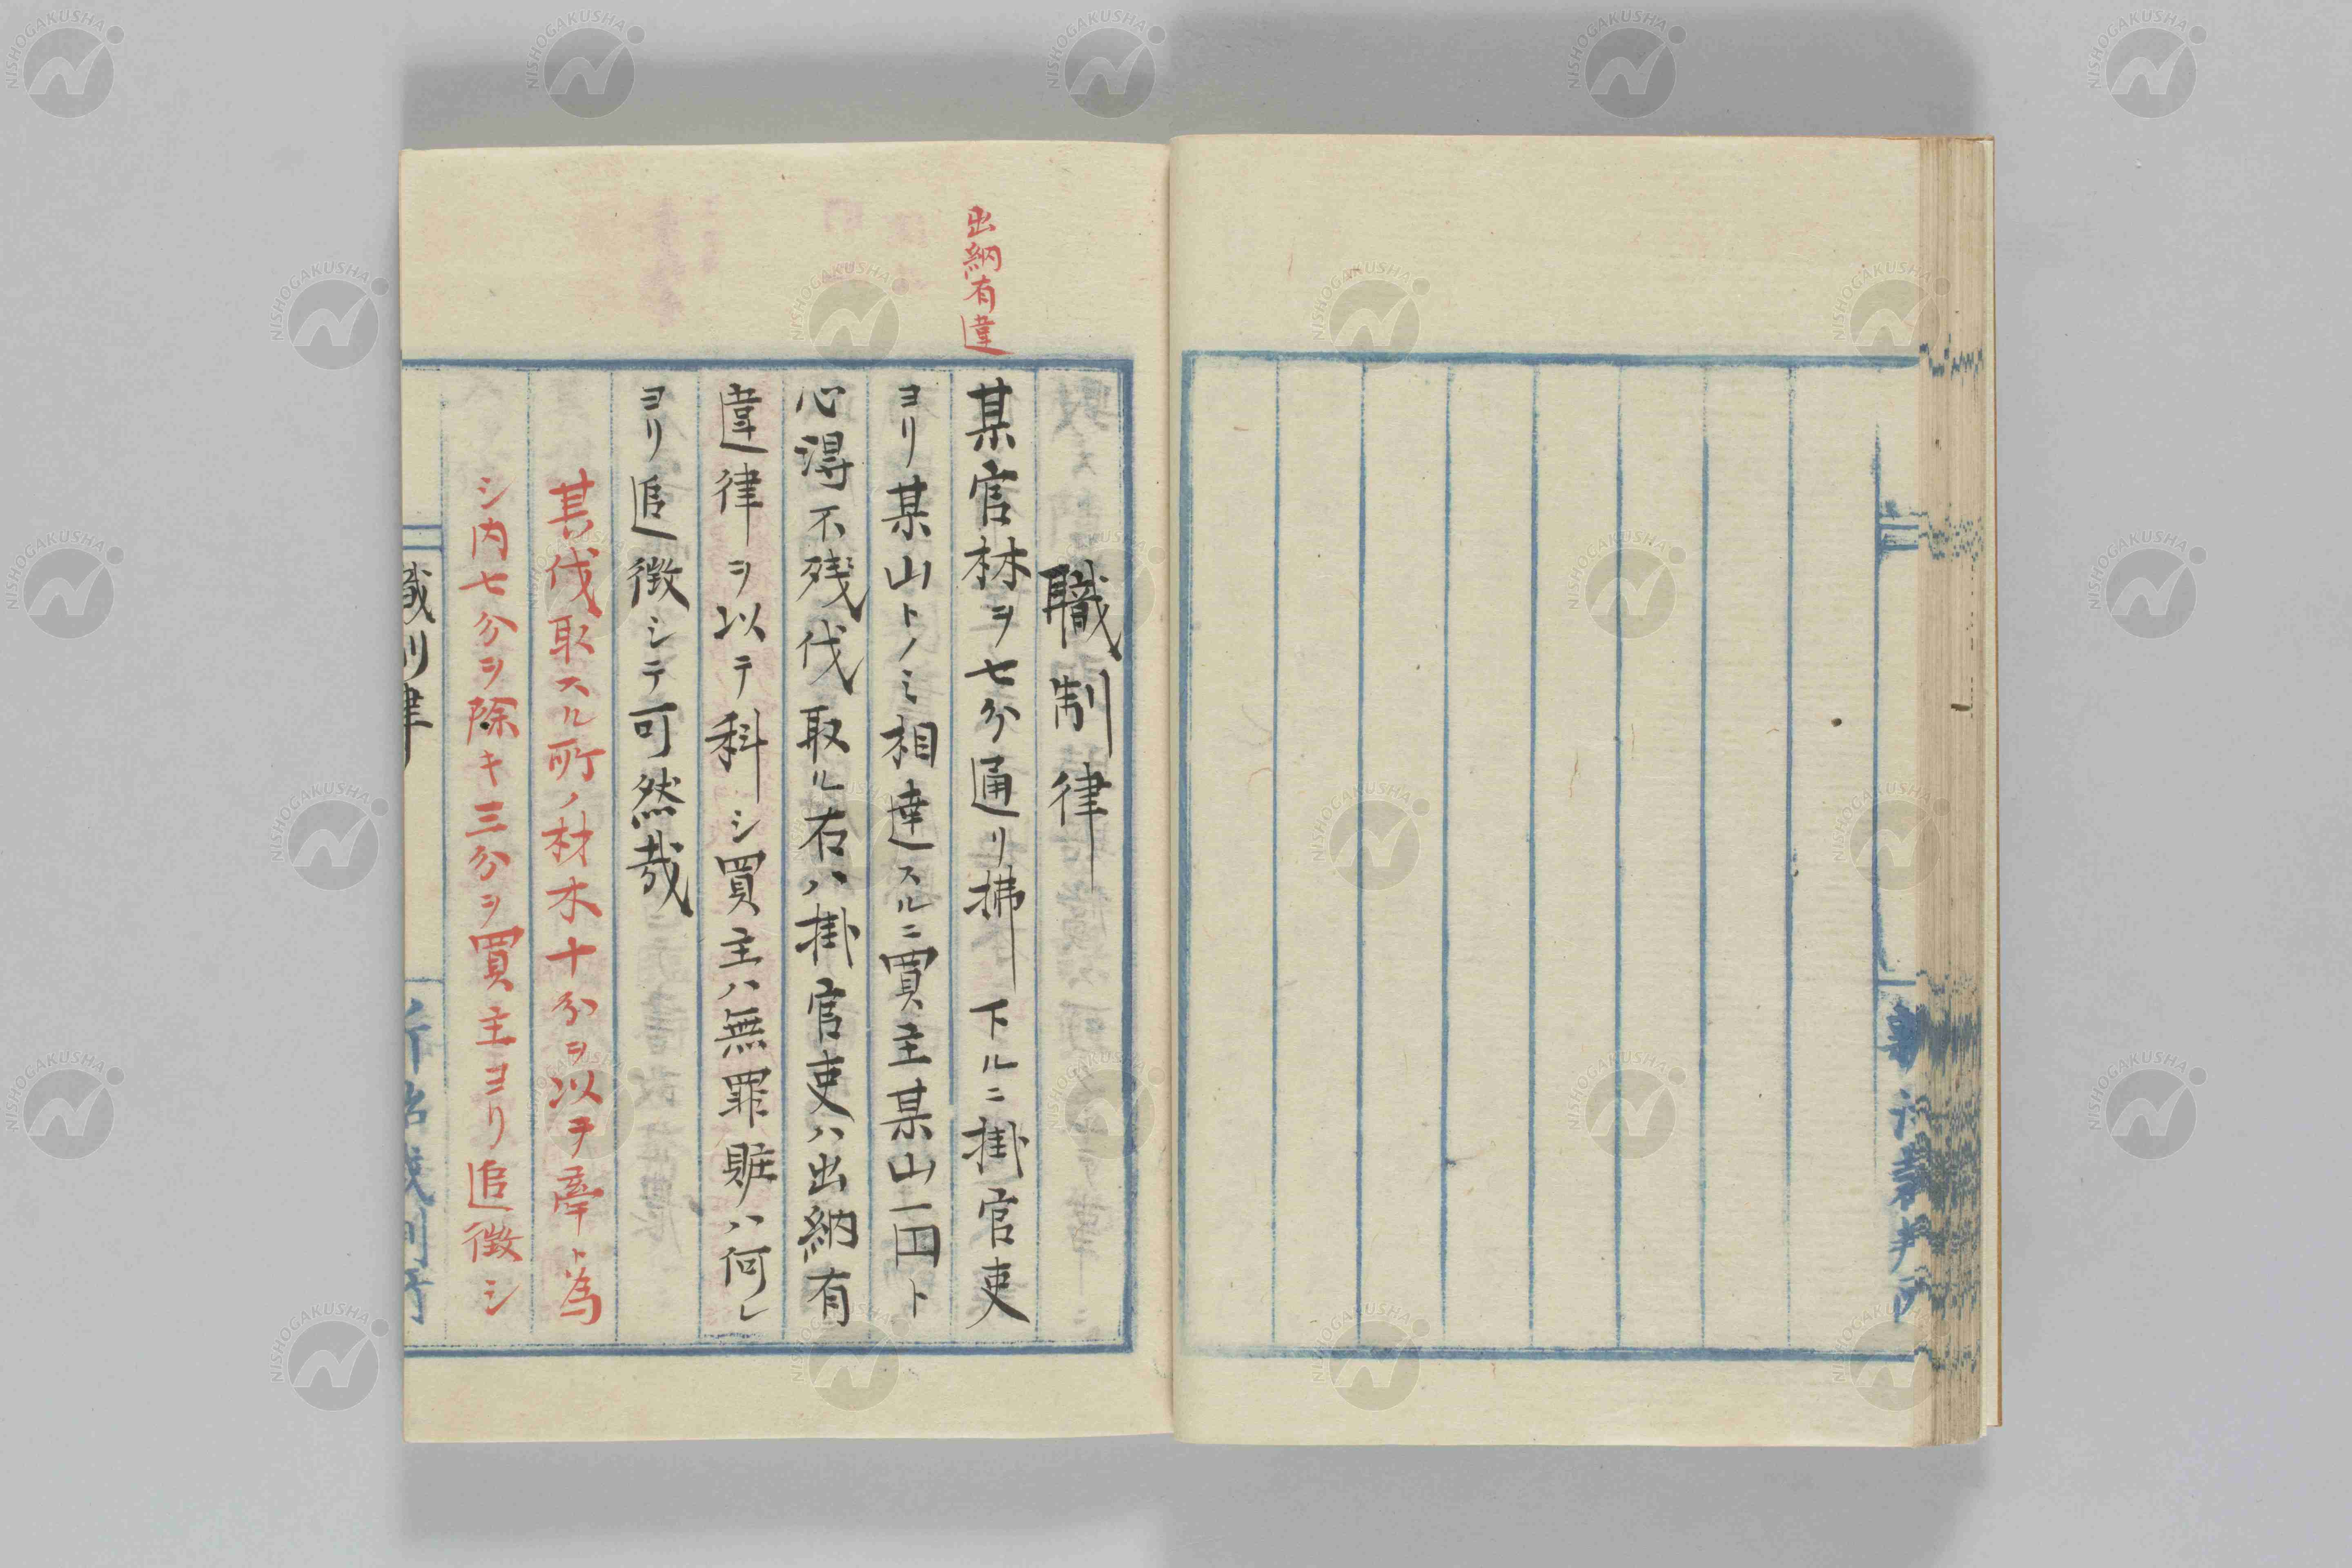 職制律
出納有違
某官林ヲ七分通リ拂下ルニ掛官吏
ヨリ某山トノミ相達スルニ買主某山一円ト
心得不残伐取ル右ハ掛官吏ハ出納有
違律ヲ以テ科シ買主ハ無罪賍ハ何レ
ヨリ追徴シテ可然哉
其伐取スル所ノ材木十分ヲ以テ率ト為
シ内七分ヲ除キ三分ヲ買主ヨリ追徴シ
職制律
NISHOGAKUSHA